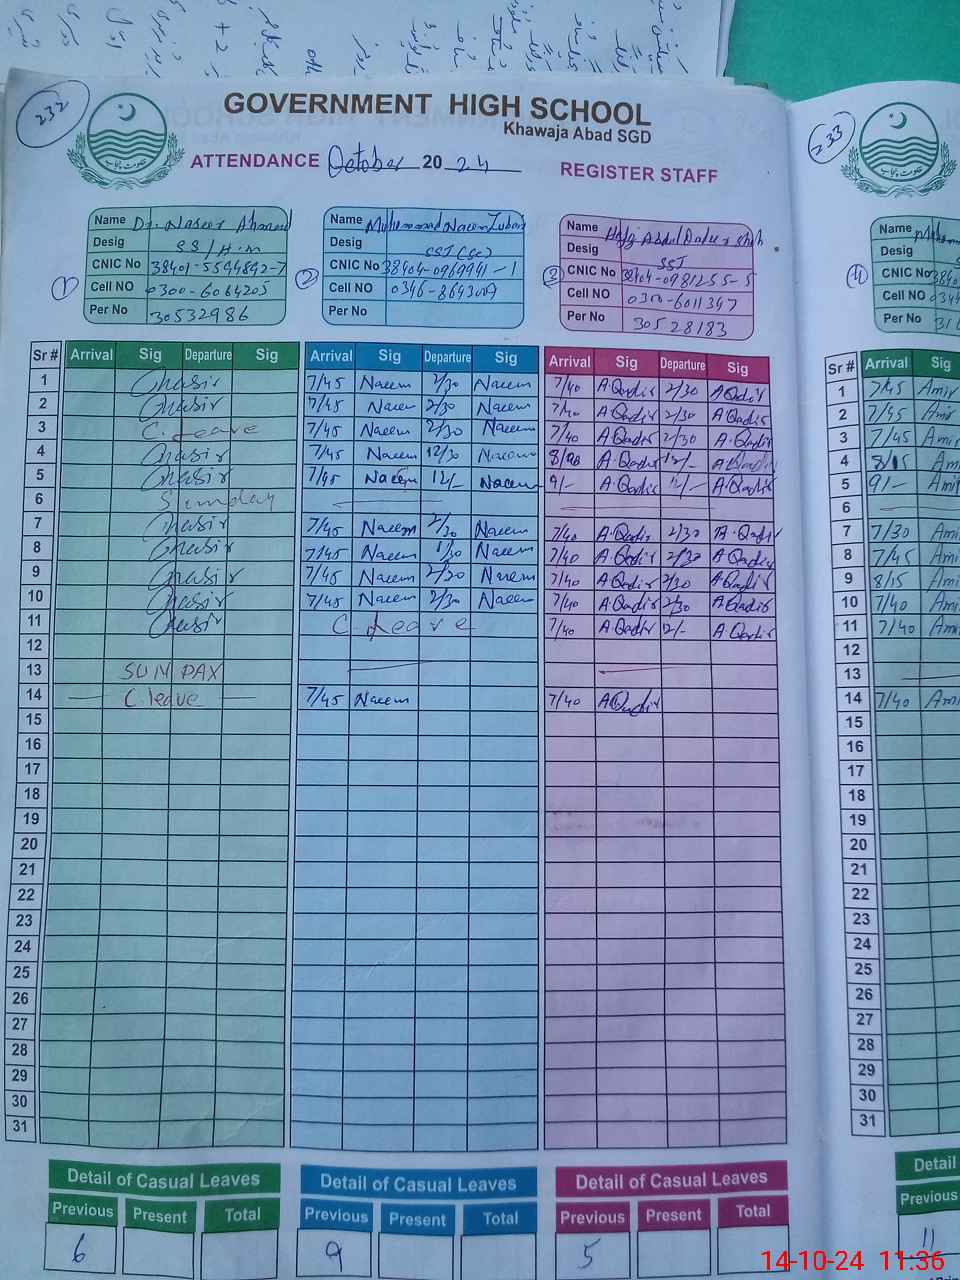 232
GOVERNMENT HIGH SCHOOL
Khawaja Abad SGD
ATTENDANCE October 2024 REGISTER STAFF
233
1
Name Dr. Naseer Ahmad
Desig SS/H.M
CNIC No 38401-5594842-7
Cell NO 0300-6064205
Per No 30532986
2
Name Muhammad Naeem Zubair
Desig SST (Sc)
CNIC No 38404-0969941-1
Cell NO
Per No
3
Name Hafiz Abdul Qadir Shah
Desig SST
CNIC No 38404-0981255-5
Cell NO 0300-6011347
Per No 30528183
4
Name
Desig
CNIC No
Cell NO
Per No
Sr # Arrival Sig Departure Sig Arrival Sig Departure Sig Arrival Sig Departure Sig Sr # Arrival Sig
1 Nasir 7/45 Naeem 2/30 Naeem 7/40 A.Qadir 2/30 A.Qadir 1 7/45 Amir
2 Nasir 7/45 Naeem 2/30 Naeem 7/40 A.Qadir 2/30 A.Qadir 2 7/45 Amir
3 C.Leave 7/45 Naeem 2/30 Naeem 7/40 A.Qadir 2/30 A.Qadir 3 7/45 Ami
4 Nasir 7/45 Naeem 12/30 Naeem A.Qadir 12/- A.Qadir 4 8/15 Am
5 Nasir 7/45 Naeem 12/- Naeem 9/- A.Qadir 12/- A.Qadir 5 9/- Ami
6 Sunday 6
7 Nasir 7/45 Naeem 2/30 Naeem 7/40 A.Qadir 2/30 A.Qadir 7 7/30 Ami
8 Nasir 7/45 Naeem 1/30 Naeem 7/40 A.Qadir 2/30 A.Qadir 8 7/45 Ami
9 Nasir 7/45 Naeem 2/30 Naeem 7/40 A.Qadir 2/30 A.Qadir 9 8/15 Ami
10 Nasir 7/45 Naeem 2/30 Naeem 7/40 A.Qadir 2/30 A.Qadir 10 7/40 Ami
11 Nasir C.Leave 7/40 A.Qadir 2/- A.Qadir 11 7/40 Ami
12 12
13 SUNDAY 13
14 C.leave 7/45 Naeem 7/40 A.Qadir 14 7/40 Ami
15 15
16 16
17 17
18 18
19 19
20 20
21 21
22 22
23 23
24 24
25 25
26 26
27 27
28 28
29 29
30 30
31 31
Detail of Casual Leaves Detail of Casual Leaves Detail of Casual Leaves Detail
Previous Present Total Previous Present Total Previous Present Total Previous
6 9 5 11
14-10-24 11:36